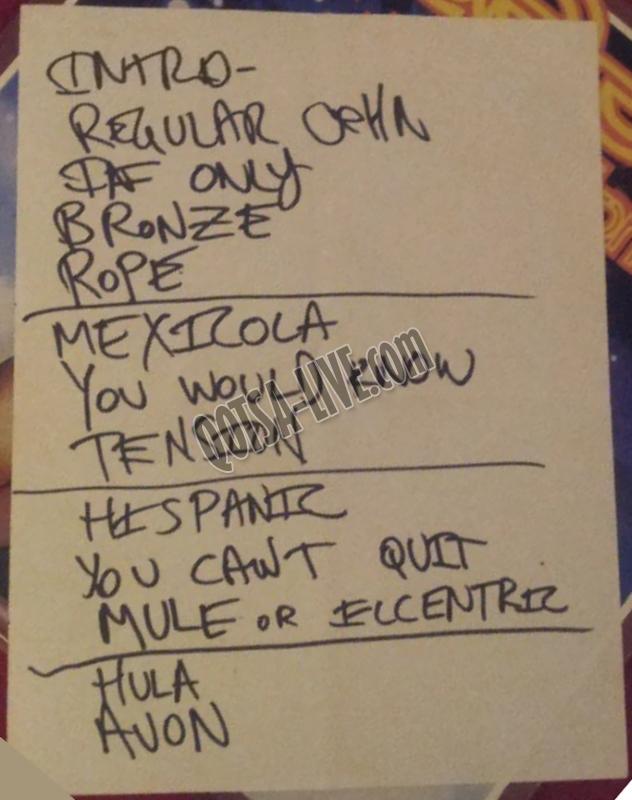 INTRO-
REGULAR JOHN
IF ONLY
BRONZE
ROPE
MEXICOLA
YOU WOULD KNOW
QOTSA-LIVE.com
TENSION
HISPANIC
YOU CAN'T QUIT
MULE OR ECCENTRIC
HULA
AVON